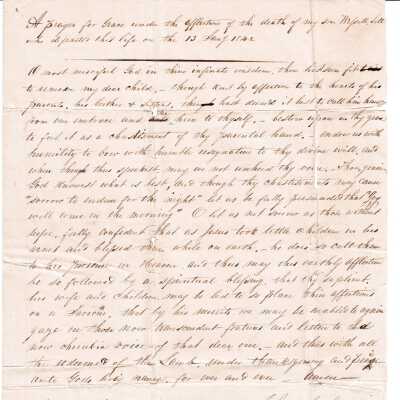 A prayer for Grace under the affliction of the death of my son
who departed this life on the 13 1842
O most merciful God in thine infinite wisdom, thou hast seen fit
to remove my dear child, though rent by affliction to the hearts of his
parents, his brother & sisters, thou hast deemed it best to call him hence
from our embrace and him to thyself, bestow upon us thy grace
to feel it as a chastisement of thy parental hand. endue us with
humility to bow with humble resignation to thy divine will, and
when thus speakest, may we not unheed thy voice. Thou gracious
God knowest what is best, and though thy chastisement may cause
sorrow to endure for the night let us be fully persuaded that "Joy
will come in the morning" O let us not sorrow as those without
hope, fully confident that as Jesus took little children in his
arms and blessed them while on earth, he does so call them
to his presence in Heaven and thus may this earthly affliction
be so followed by a spiritual blessing that thy suppliant
his wife and children may be led to so place their affections
on a Saviour, that by his merits we may be enabled again
gaze on those now transcendent features and listen to the
now cherubic voice of that dear one. and thus with all
the redeemed of the Lamb, render thanksgiving and praise
unto Gods holy name, for ever and ever Amen